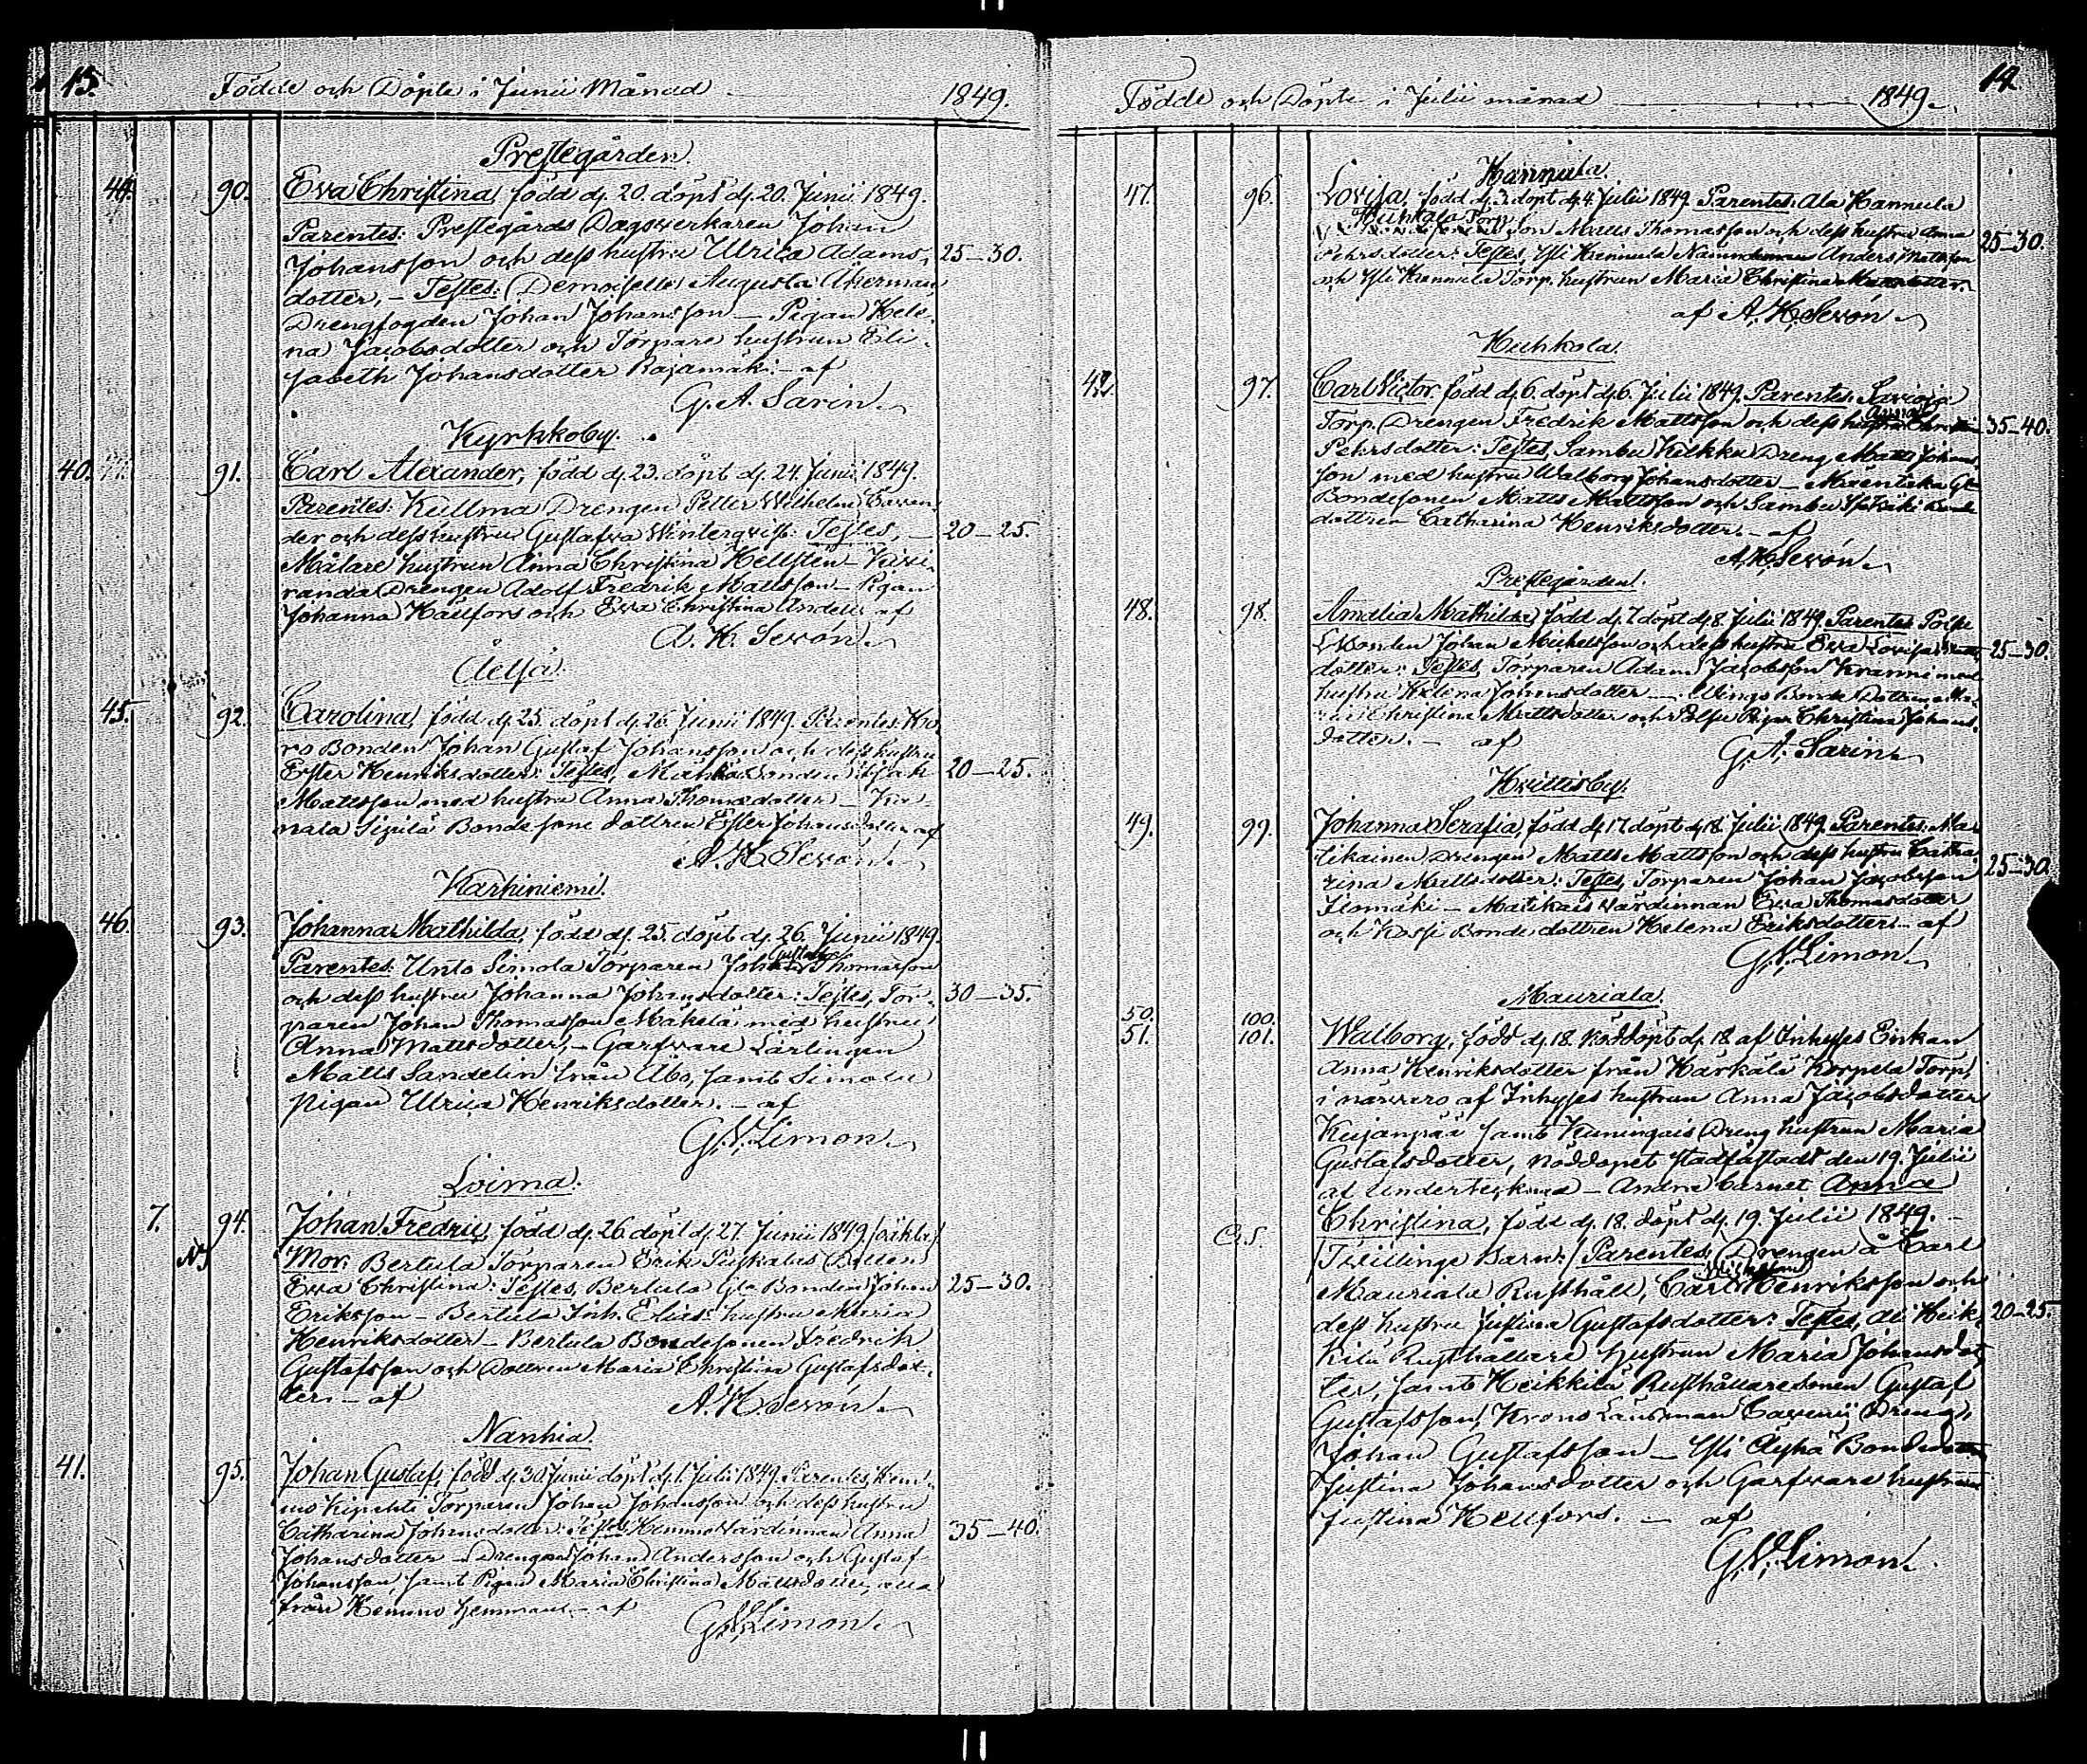 15. Födde och Döpte i Junii Månad 1849.
Prestegården.
44. 90. Eva Christina, född d. 20. döpt d. 20. Junii 1849.
Parentes: Prestegårds Dagsverkaren Johan
Johansson och dess hustru Ulrica Adams- 25–30.
dotter, – Testes: Demoiselle Augusta Åkerman,
Drengfogden Johan Johansson – Pigan Hele-
na Jacobsdotter och Torpare hustrun Eli-
sabeth Johansdotter Rajamäki. – af
G. A. Sarin.
Kyrkkoby.
40. 91. Carl Alexander, född d. 23. döpt d. 24. Junii 1849.
Parentes: Kullma Drengen Petter Wilhelm
der och dess hustru Gustafva Winterqvist: Testes, – 20–25.
Målare hustrun Anna Christina Hellsten –
randa Drengen Adolf Fredrik Mattsson – Pigan
Johanna Hallfors och Eva Christina Andell. af
A. H. Sevón.
45. 92. Carolina, född d. 25. döpt d. 26. Junii 1849. Parentes: Ko-
ro Bonden Johan Gustaf Johansson och dess hustru
Ester Henriksdotter: Testes, Bonden Isaak 20–25.
Mattsson med hustru Anna Thomasdotter –
Bonde sone dottren Ester Johansdotter af
A. H. Sevón.
Karhiniemi.
46. 93. Johanna Mathilda, född d. 25. döpt d. 26. Junii 1849.
Gustaf
Parentes: Unto Simola Torparen Johan Thomasson
och dess hustru Johanna Johansdotter: Testes, Tor- 30–35.
paren Johan Thomasson Mäkelä med hustru
Anna Mattsdotter, – Garfvare Lärlingen
Matts Sandelin från Åbo, samt Simola
pigan Ulrica Henriksdotter. – af
G. V. Limon.
Loima.
7. 94. Johan Fredric, född d. 26. döpt d. 27. Junii 1849. /oäkta/
Mor: Bertula Torparen Erik Dotter
Eva Christina: Testes, Bertula Gla Bonden Johan 25–30.
Eriksson – Bertula Inh. Elias hustru Maria
Henriksdotter – Bertula Bondesonen Fredrik
Gustafsson och Dottren Maria Christina Gustafsdot-
ter. – af A. H. Sevón.
Nanhia.
41. 95. Johan Gustaf, född d. 30 Junii döpt d. 1. Julii 1849. Parentes, Hem-
mo Torparen Johan Johansson och dess hustru
Catharina Johansdotter: Testes, Hemmo Värdinnan Anna 35–40.
Johansdotter – Drengarne Johan Andersson och Gustaf
Johansson, samt Pigan Maria Christina Mattsdotter, alla
från Hemmo hemman. – af
G. V. Limon.
14. Födde och Döpte i Julii månad 1849.
Hannula.
47. 96. Lovisa, född d. 3. döpt d. 4. Julii 1849. Parentes: Ala Hannula
Torp
Matts Thomasson och dess hustru Anna 25–30.
Pehrsdotter: Testes, Yli Hannula Nämndeman Anders Mattsson
och Yli Hannula Torp. hustrun Maria Christina Mattsdotter.
af A. H. Sevón.
Huhkola.
42. 97. Carl Victor, född d. 6. döpt d. 6. Julii 1849. Parentes: Savioja
Anna
Torp. Drengen Fredrik Mattsson och dess hustru 35–40.
Pehrsdotter: Testes, Sambu Dreng Matts Johans-
son med hustru Walborg Johansdotter –
Bondesonen Matts Mattsson och Sambu
dottren Catharina Henriksdotter. – af
A. H. Sevón.
Prestegården.
48. 98. Amalia Mathilda, född d. 7. döpt d. 8. Julii 1849. Parentes:
Johan Mickelsson och dess hustru Eva Lovisa 25–30.
dotter: Testes, Torparen Adam Jacobsson Kranni med
hustru Helena Johansdotter – Bonde Dottren Ma-
ria Christina Mattsdotter och Pigan Christina Johans-
dotter. – af G. A. Sarin.
Kvittisby.
49. 99. Johanna Serafia, född d. 17. döpt d. 18. Julii 1849. Parentes: Ma-
tikainen Drengen Matts Mattsson och dess hustru Catha- 25–30.
rina Mattsdotter: Testes, Torparen Johan Jacobsson
Ilomäki – Matikais värdinnan Eva Thomasdotter
och Bonde dottren Helena Eriksdotter. – af
G. V. Limon.
Mauriala.
50. 100.
51. 101. Walborg, född d. 18. Nöddöpt d. 18. af Inhyses Enkan
Anna Henriksdotter från Härkälä Korpela Torp,
i närvaro af Inhyses hustrun Anna Jacobsdotter
Kujanpää samt Kuningais Dreng hustrun Maria
Gustafsdotter, nöddopet stadfästadt den 19. Julii
af Undertecknad – Andra barnet Anna
Christina, född d. 18. döpt d. 19. Julii 1849. –
/Tvillinge Barn:/ Parentes, Drengen å Carl
Mauriala Rusthåll, Carl Henriksson och
dess hustru Justina Gustafsdotter: Testes, Ali Heik- 20–25.
kilä Rusthållare hustrun Maria Johansdot-
ter, samt Heikkilä Rusthållaresonen Gustaf
Gustafsson, Krono Länsman Dreng,
Johan Gustafsson – Yli Äyhö Bondedotter
Justina Johansdotter och Garfvare hustrun
Justina Hellfors. – af
G. V. Limon.